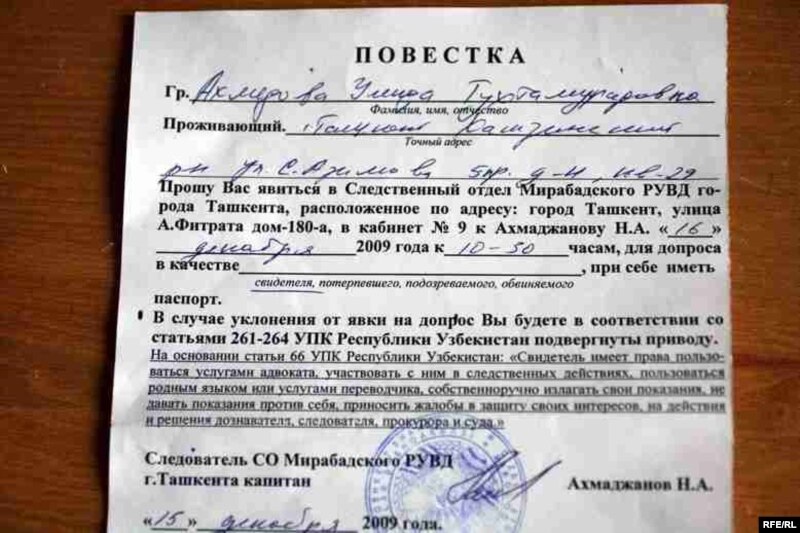 ПОВЕСТКА
Гр. Ахмедова Умида Тухтамурадовна
Фамилия, имя, отчество
Проживающий.
Точный адрес
рн ул. С. Азимова 5пр. д-4, кв-29
Прошу Вас явиться в Следственный отдел Мирабадского РУВД го-
рода Ташкента, расположенное по адресу: город Ташкент, улица
А.Фитрата дом-180-а, в кабинет № 9 к Ахмаджанову Н.А. «16»
декабря 2009 года к 10-50 часам, для допроса
в качестве , при себе иметь
свидетеля, потерпевшего, подозреваемого, обвиняемого
паспорт.
В случае уклонения от явки на допрос Вы будете в соответствии со
статьями 261-264 УПК Республики Узбекистан подвергнуты приводу.
На основании статьи 66 УПК Республики Узбекистан: «Свидетель имеет права пользо-
ваться услугами адвоката, участвовать с ним в следственных действиях, пользоваться
родным языком или услугами переводчика, собственноручно излагать свои показания, не
давать показания против себя, приносить жалобы в защиту своих интересов, на действия
и решения дознавателя, следователя, прокурора и суда.»
Следователь СО Мирабадского РУВД
г.Ташкента капитан Ахмаджанов Н.А.
«15» декабря 2009 года.
RFE/RL